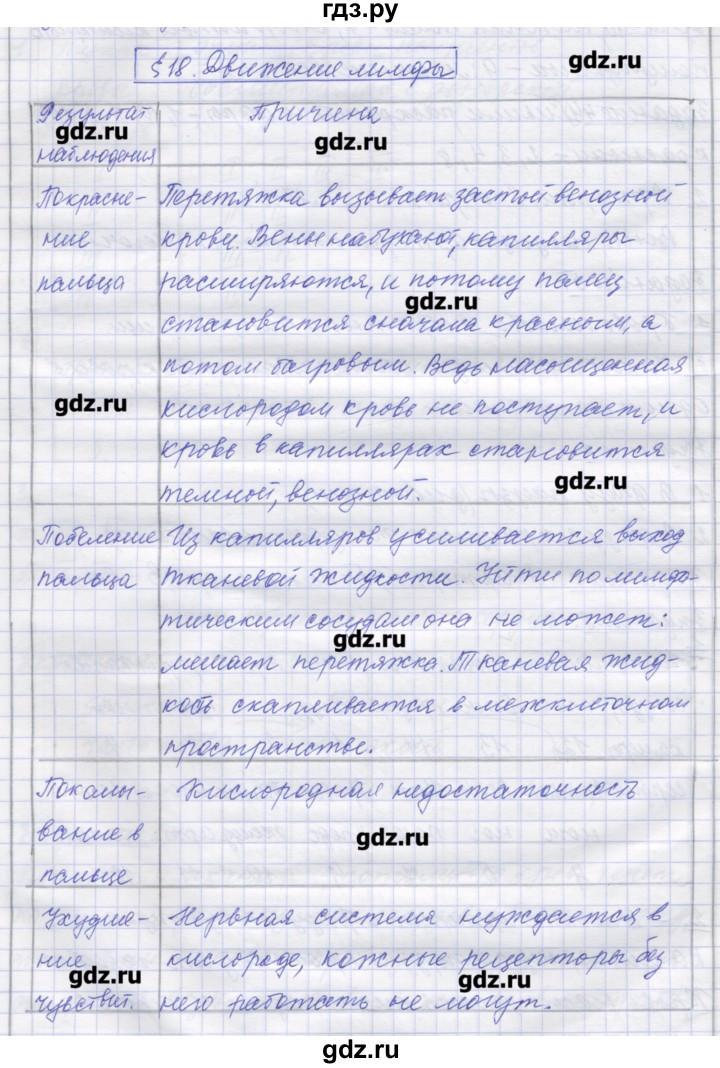 гдз.ру
§ 18. Движение лимфы
gdz.ru
Результат наблюдения
Причина
gdz.ru
gdz.ru
Покрасне-
ние
пальца
Перетяжка вызывает застой венозной
крови. Вены набухают, капилляры
расширяются, и потому палец
gdz.ru
становится сначала красным, а
потом багровым. Ведь насыщенная
gdz.ru
кислородом кровь не поступает, и
кровь в капиллярах становится
gdz.ru
темной, венозной.
Побеление
пальца
Из капилляров усиливается выход
тканевой жидкости. Уйти по лимфа-
тическим сосудам она не может:
gdz.ru
мешает перетяжка. Тканевая жид-
кость скапливается в межклеточном
пространстве.
Покалы-
вание в
пальце
Кислородная недостаточность
gdz.ru
Ухудше-
ние
чувствит.
Нервная система нуждается в
кислороде, кожные рецепторы без
gdz.ru
gdz.ru
него работать не могут.
gdz.ru